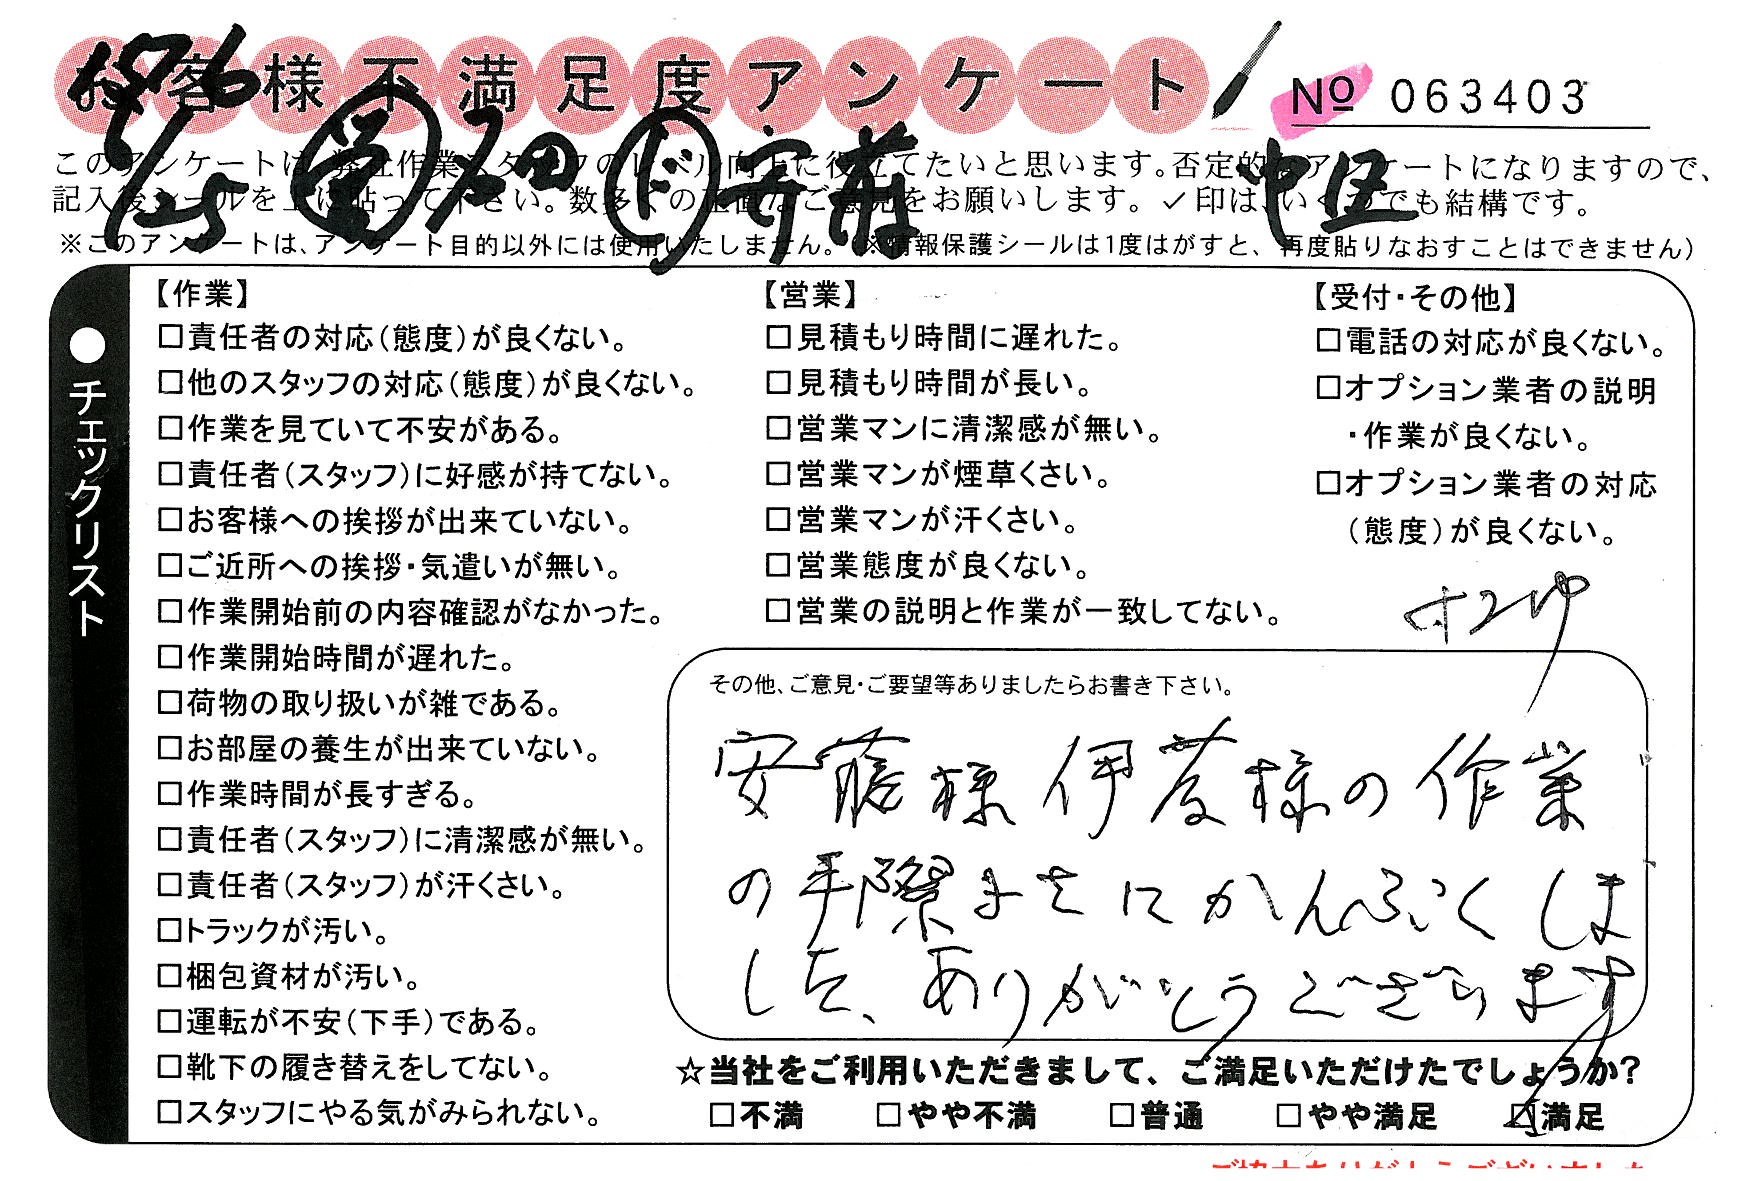 お客様不満足度アンケート
№ 063403
1/25 営 石田 ド 安藤
中区
このアンケートは、弊社作業スタッフのレベル向上に役立てたいと思います。否定的なアンケートになりますので、
記入後シールを上に貼って下さい。数多くの正直なご意見をお願いします。✓印は、いくつでも結構です。
※このアンケートは、アンケート目的以外には使用いたしません。(※情報保護シールは1度はがすと、再度貼りなおすことはできません)
●チェックリスト
【作業】
□責任者の対応(態度)が良くない。
□他のスタッフの対応(態度)が良くない。
□作業を見ていて不安がある。
□責任者(スタッフ)に好感が持てない。
□お客様への挨拶が出来ていない。
□ご近所への挨拶・気遣いが無い。
□作業開始前の内容確認がなかった。
□作業開始時間が遅れた。
□荷物の取り扱いが雑である。
□お部屋の養生が出来ていない。
□作業時間が長すぎる。
□責任者(スタッフ)に清潔感が無い。
□責任者(スタッフ)が汗くさい。
□トラックが汚い。
□梱包資材が汚い。
□運転が不安(下手)である。
□靴下の履き替えをしてない。
□スタッフにやる気がみられない。
【営業】
□見積もり時間に遅れた。
□見積もり時間が長い。
□営業マンに清潔感が無い。
□営業マンが煙草くさい。
□営業マンが汗くさい。
□営業態度が良くない。
□営業の説明と作業が一致してない。
【受付・その他】
□電話の対応が良くない。
□オプション業者の説明
・作業が良くない。
□オプション業者の対応
(態度)が良くない。
その他、ご意見・ご要望等ありましたらお書き下さい。
安藤様伊藤様の作業
の手際まさにかんぷくしま
した、ありがとうございます
☆当社をご利用いただきまして、ご満足いただけたでしょうか?
□不満 □やや不満 □普通 □やや満足 ☑満足
ご協力ありがとうございました